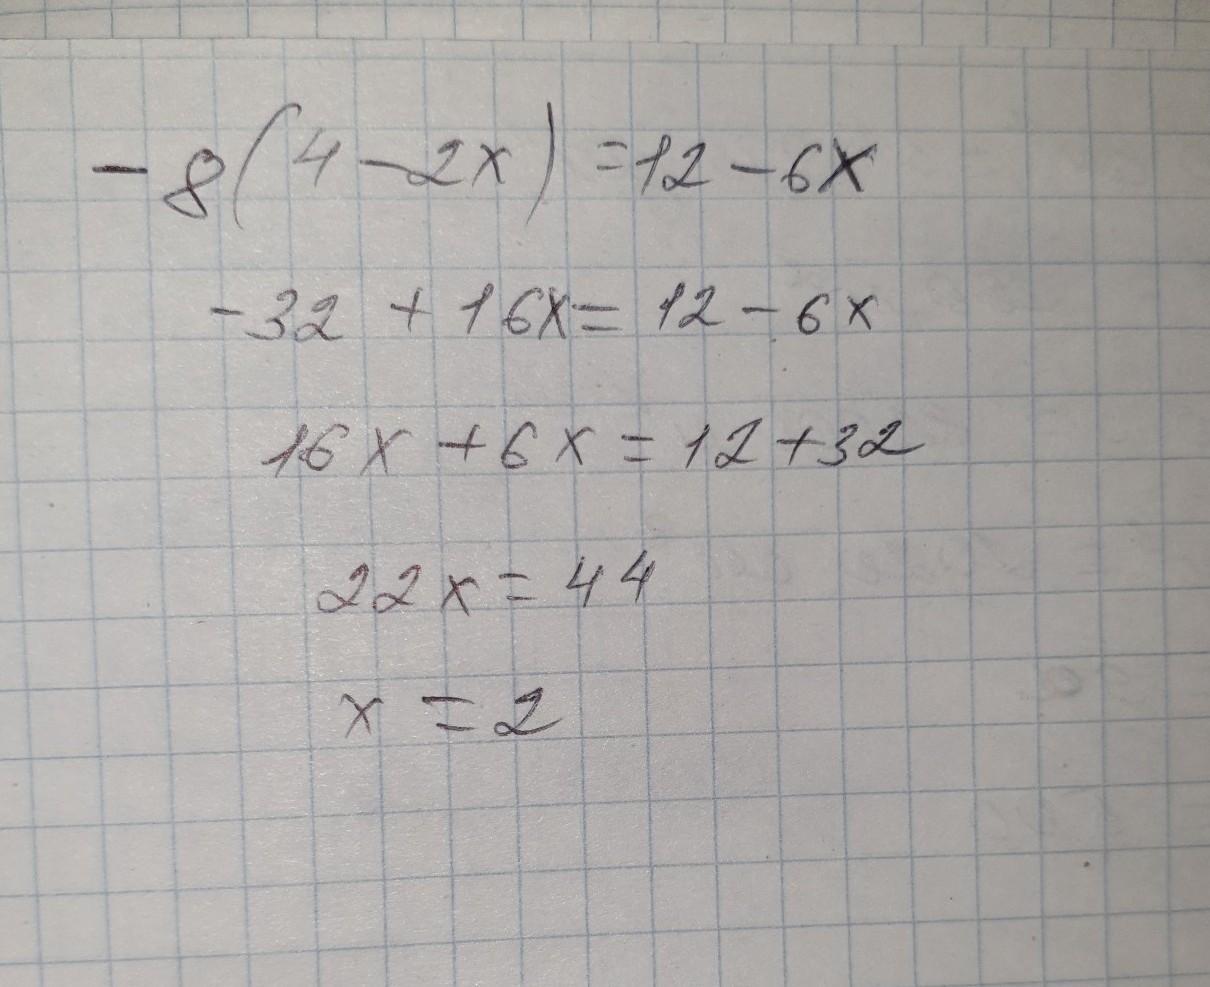 -8(4-2x)=12-6x
-32+16x=12-6x
16x+6x=12+32
22x=44
x=2